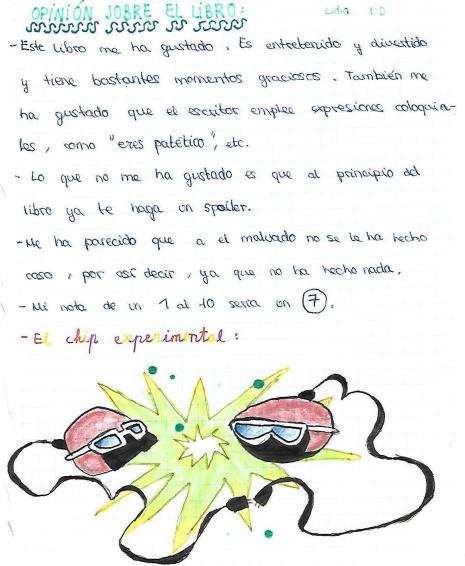 OPINIÓN SOBRE EL LIBRO:
Lidia 1ºD
- Este libro me ha gustado. Es entretenido y divertido
y tiene bastantes momentos graciosos. También me
ha gustado que el escritor emplee expresiones coloquia-
les, como "eres patético", etc.
- Lo que no me ha gustado es que al principio del
libro ya te haga un spoiler.
- Me ha parecido que a el malvado no se le ha hecho
caso, por así decir, ya que no ha hecho nada.
- Mi nota de un 1 al 10 seria un 7.
- El chip experimental: